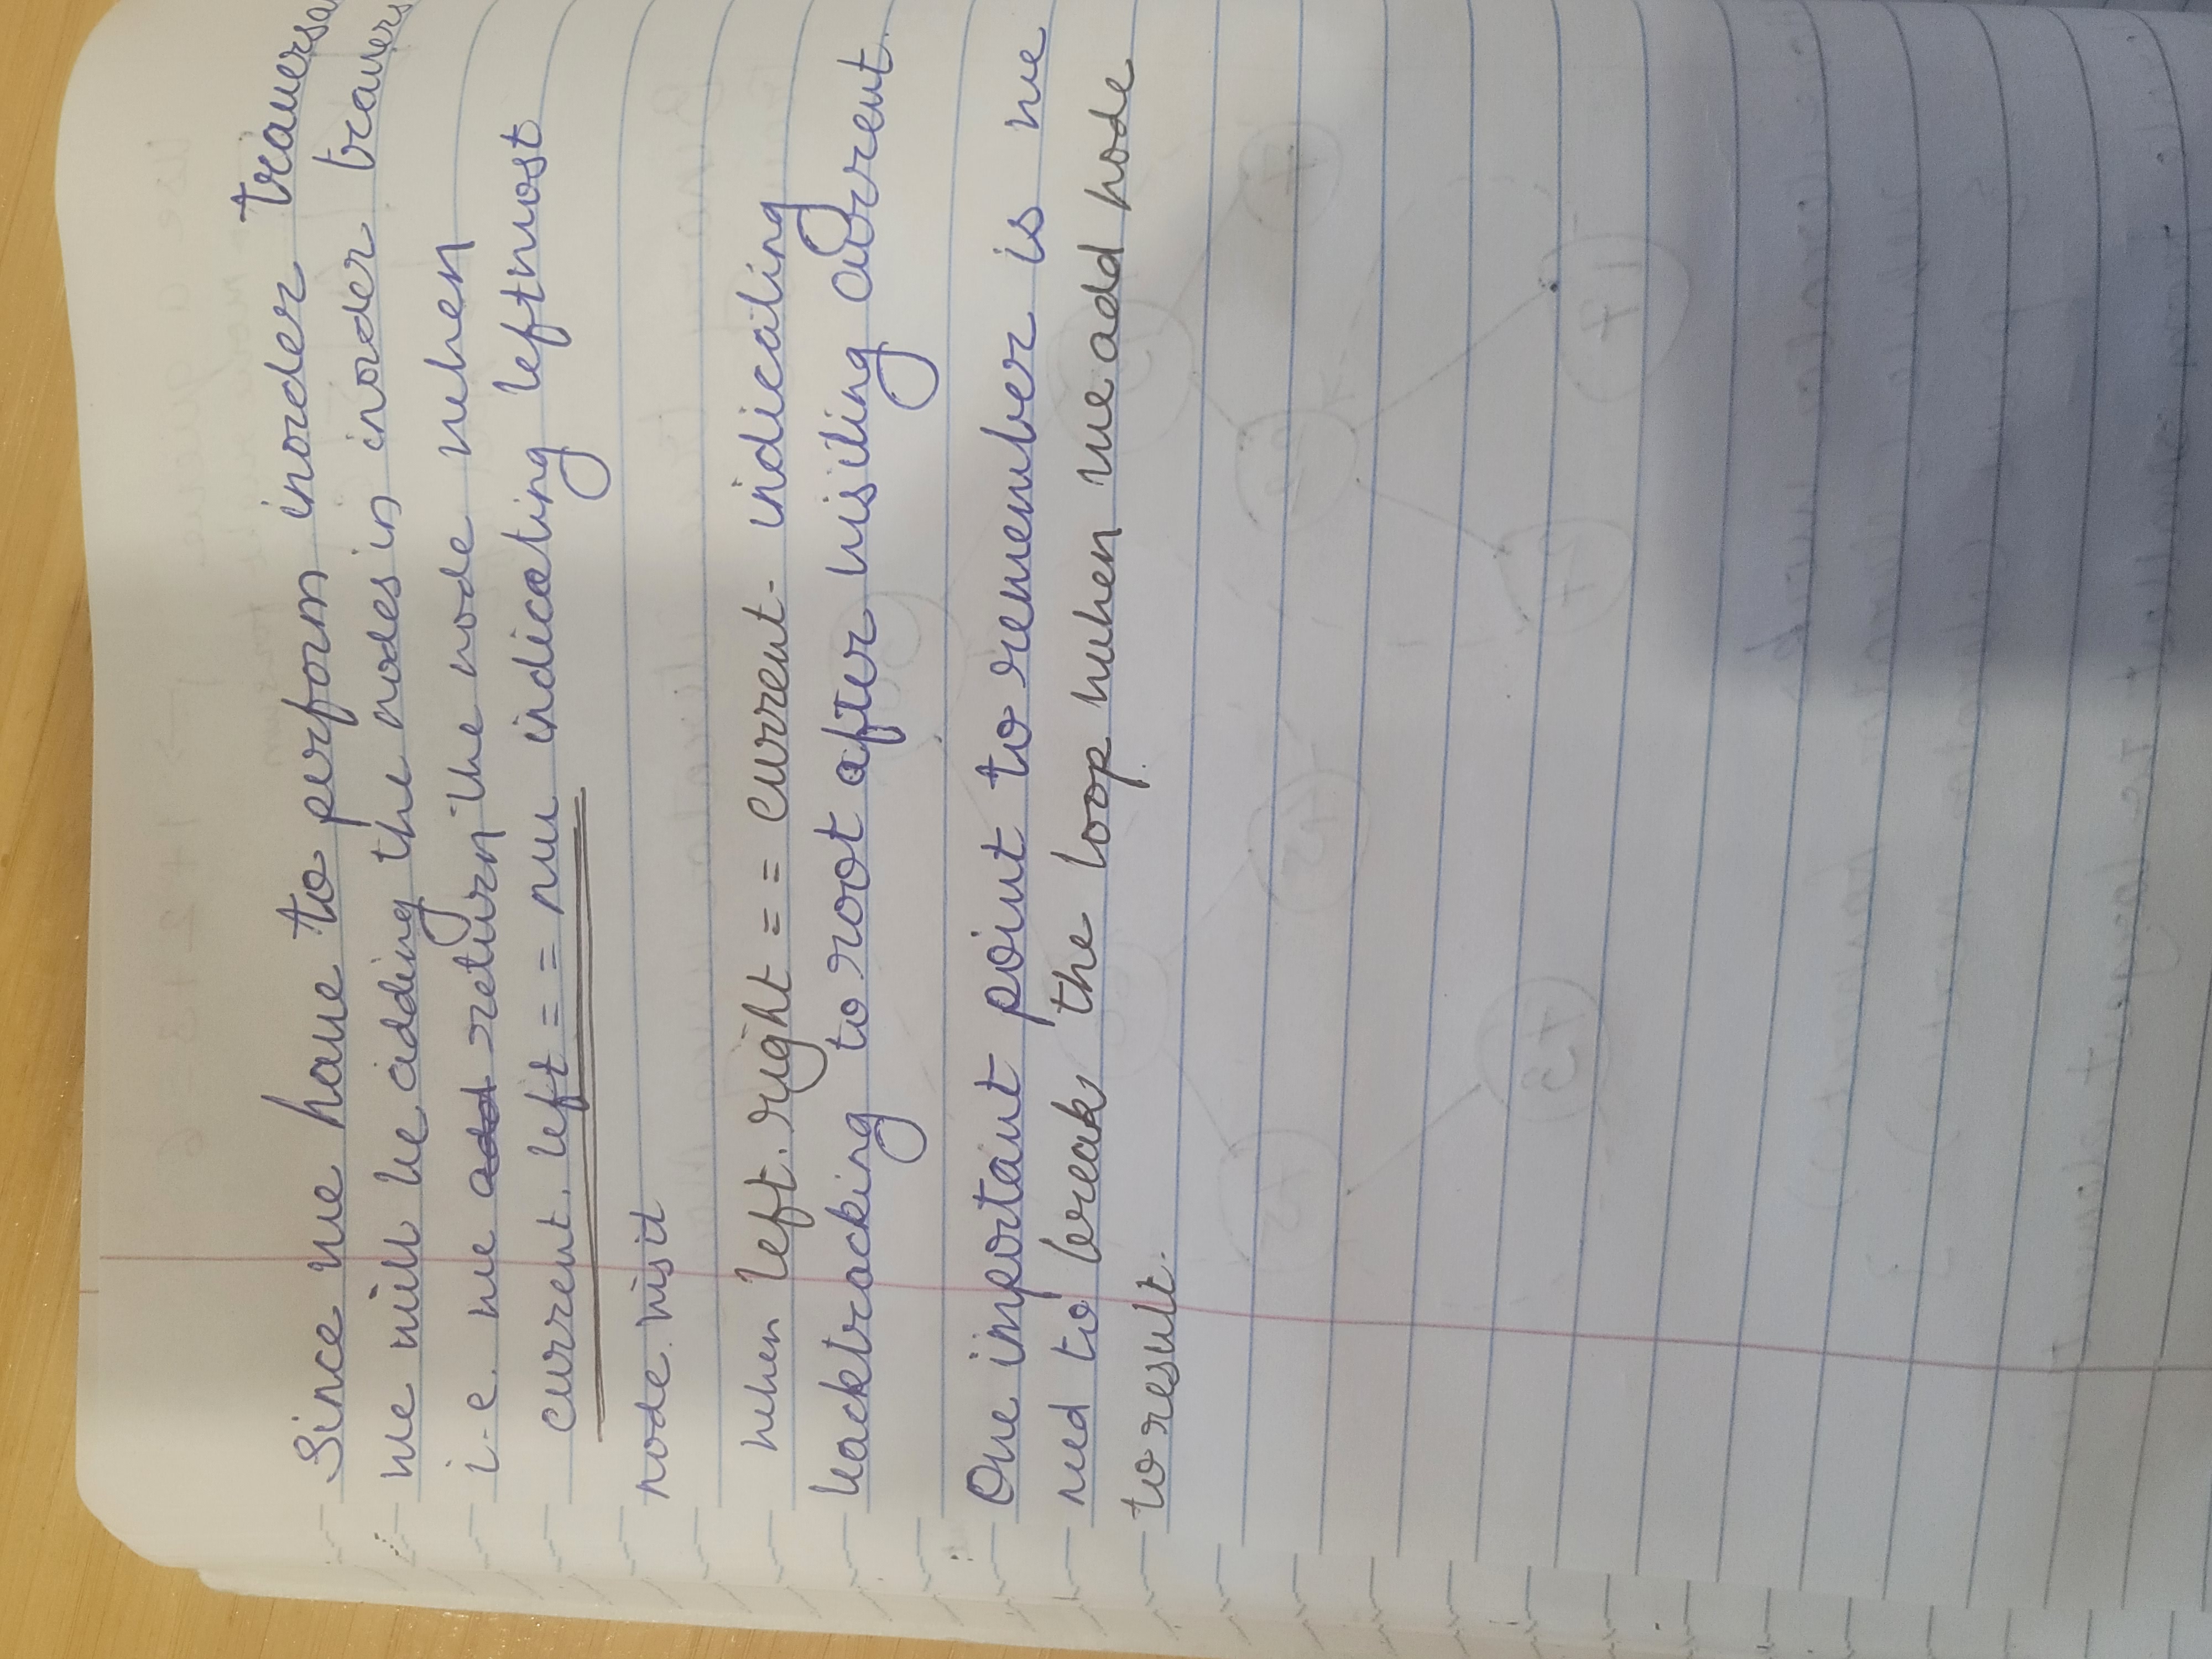 Since we have to perform inorder traversa
we will be adding the nodes in inorder travers
i.e. we add return the node when
current. left == null indicating leftmost
node visit
when left. right == current. indicating
backtracking to root after visiting current.
One important point to remember is we
need to break the loop when we add node
to result.